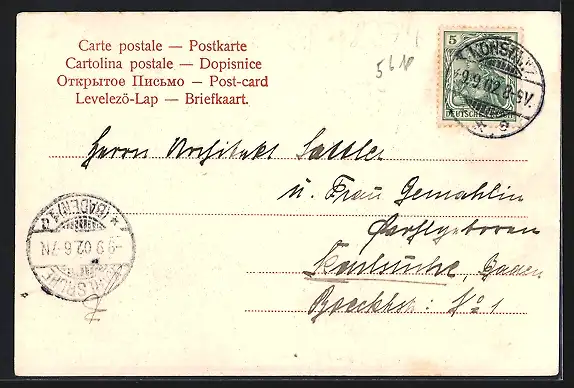 Carte postale — Postkarte
Cartolina postale — Dopisnice
Открытое Письмо — Post-card
Levelező-Lap — Briefkaart.
5
KONSTANZ
9.9.02.8-9V.
DEUTSCHES REICH
Herrn Architekt Sattler
u. Frau Gemahlin
Karlsruhe, Baden
Boeckhstr: No 1
KARLSRUHE
(BADEN) 1
9.9.02.6-7N